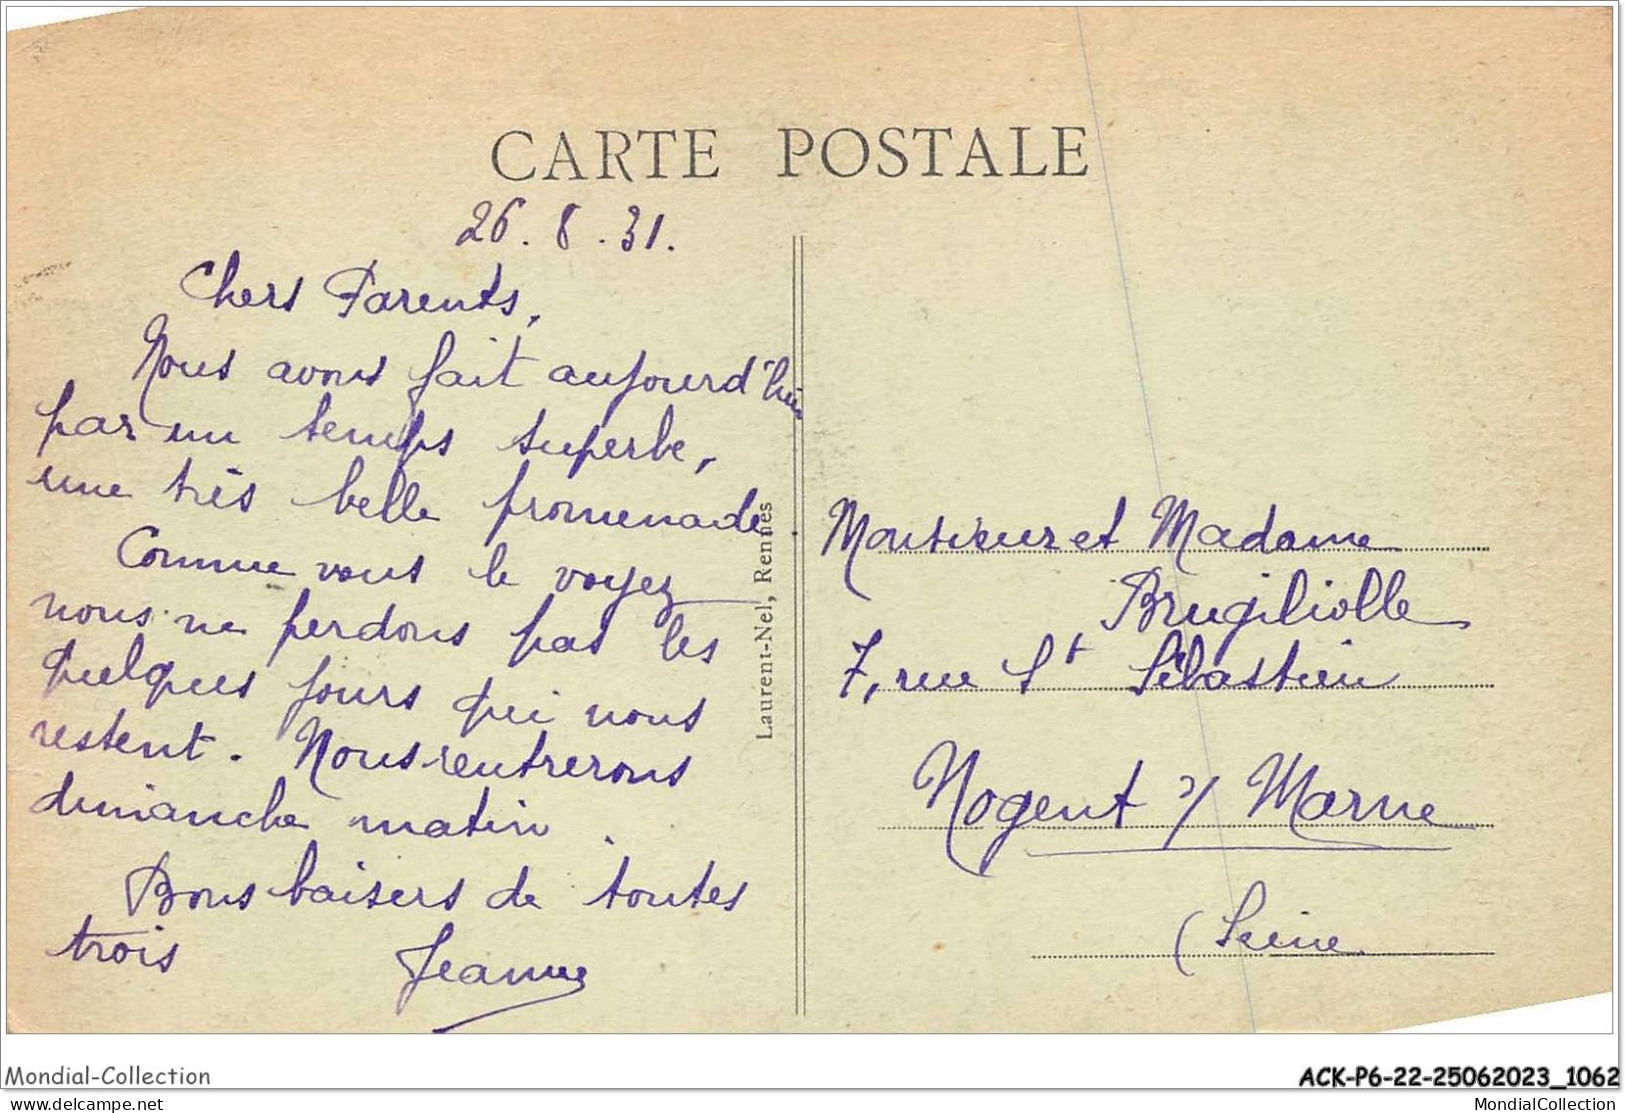 CARTE POSTALE
26.8.31.
Chers Parents,
Nous avons fait aujourd'hui
par un temps superbe,
une très belle promenade.
Comme vous le voyez
nous ne perdons pas les
quelques jours qui nous
restent. Nous rentrerons
dimanche matin.
Bons baisers de toutes
trois Jeanne
Laurent-Nel, Rennes
Monsieur et Madame
Brugiliolle
7, rue St Sébastien
Nogent s/ Marne
(Seine
Mondial-Collection
ACK-P6-22-25062023_1062
delcampe.net
MondialCollection